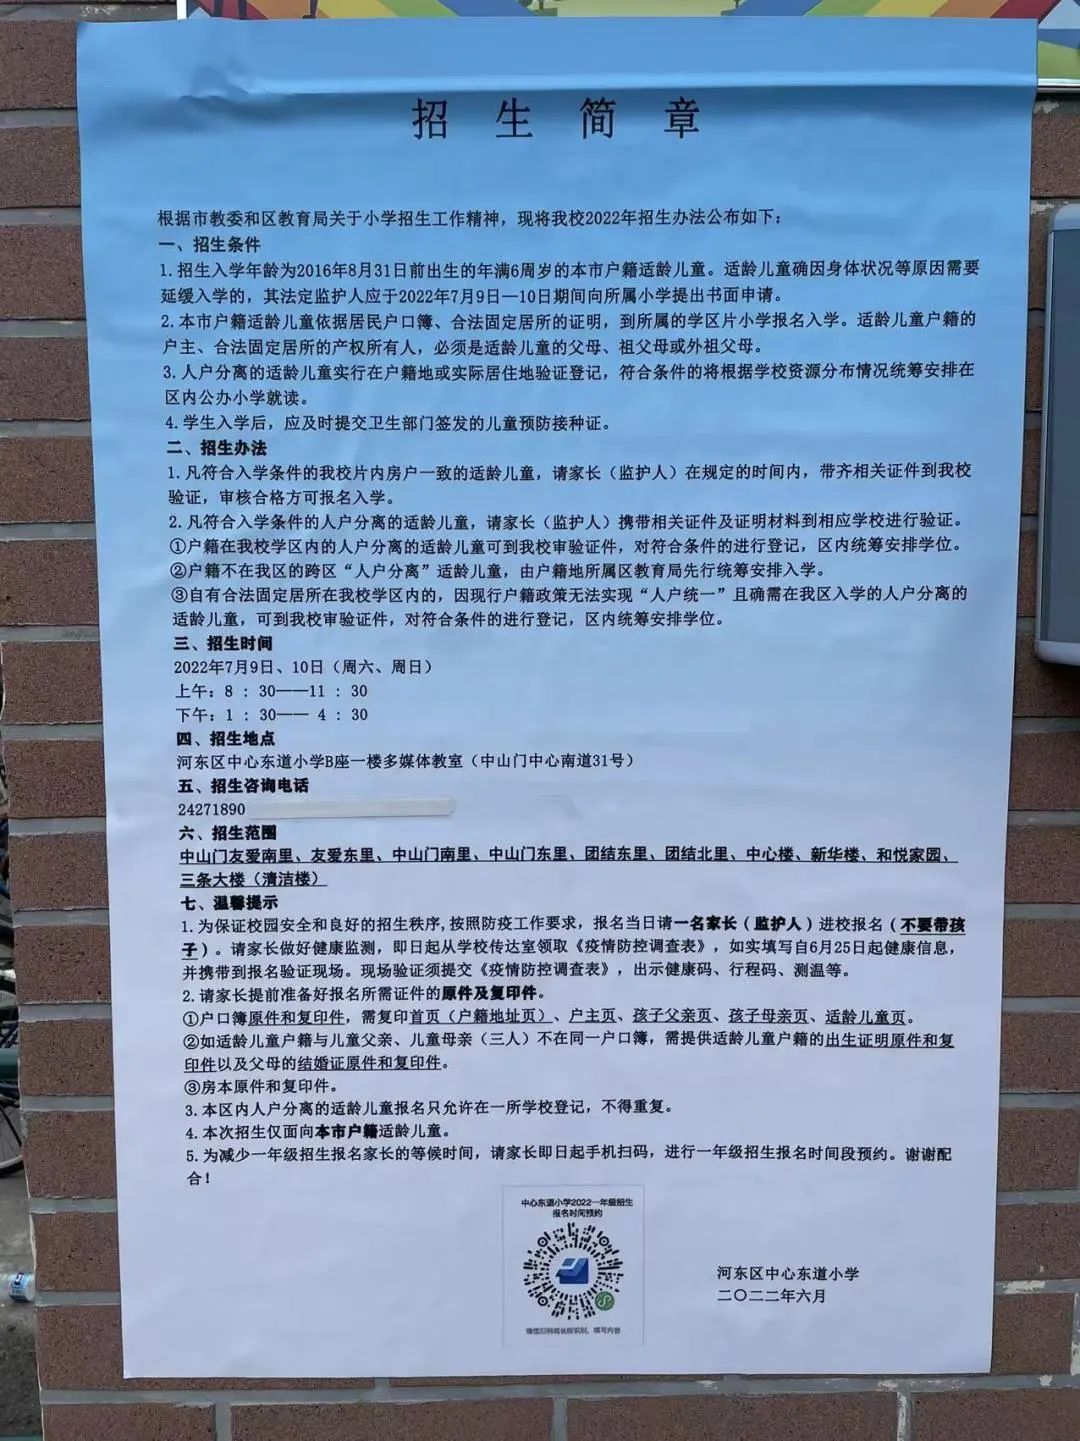 招生简章
根据市教委和区教育局关于小学招生工作精神，现将我校2022年招生办法公布如下：
一、招生条件
1.招生入学年龄为2016年8月31日前出生的年满6周岁的本市户籍适龄儿童。适龄儿童确因身体状况等原因需要
延缓入学的，其法定监护人应于2022年7月9日—10日期间向所属小学提出书面申请。
2.本市户籍适龄儿童依据居民户口簿、合法固定居所的证明，到所属的学区片小学报名入学。适龄儿童户籍的
户主、合法固定居所的产权所有人，必须是适龄儿童的父母、祖父母或外祖父母。
3.人户分离的适龄儿童实行在户籍地或实际居住地验证登记，符合条件的将根据学校资源分布情况统筹安排在
区内公办小学就读。
4.学生入学后，应及时提交卫生部门签发的儿童预防接种证。
二、招生办法
1.凡符合入学条件的我校片内房户一致的适龄儿童，请家长（监护人）在规定的时间内，带齐相关证件到我校
验证，审核合格方可报名入学。
2.凡符合入学条件的人户分离的适龄儿童，请家长（监护人）携带相关证件及证明材料到相应学校进行验证。
①户籍在我校学区内的人户分离的适龄儿童可到我校审验证件，对符合条件的进行登记，区内统筹安排学位。
②户籍不在我区的跨区“人户分离”适龄儿童，由户籍地所属区教育局先行统筹安排入学。
③自有合法固定居所在我校学区内的，因现行户籍政策无法实现“人户统一”且确需在我区入学的人户分离的
适龄儿童，可到我校审验证件，对符合条件的进行登记，区内统筹安排学位。
三、招生时间
2022年7月9日、10日（周六、周日）
上午：8 : 30——11 : 30
下午：1 : 30—— 4 : 30
四、招生地点
河东区中心东道小学B座一楼多媒体教室（中山门中心南道31号）
五、招生咨询电话
24271890
六、招生范围
中山门友爱南里、友爱东里、中山门南里、中山门东里、团结东里、团结北里、中心楼、新华楼、和悦家园、
三条大楼（清洁楼）
七、温馨提示
1.为保证校园安全和良好的招生秩序,按照防疫工作要求，报名当日请一名家长（监护人）进校报名（不要带孩
子）。请家长做好健康监测，即日起从学校传达室领取《疫情防控调查表》，如实填写自6月25日起健康信息，
并携带到报名验证现场。现场验证须提交《疫情防控调查表》，出示健康码、行程码、测温等。
2.请家长提前准备好报名所需证件的原件及复印件。
①户口簿原件和复印件，需复印首页（户籍地址页）、户主页、孩子父亲页、孩子母亲页、适龄儿童页。
②如适龄儿童户籍与儿童父亲、儿童母亲（三人）不在同一户口簿，需提供适龄儿童户籍的出生证明原件和复
印件以及父母的结婚证原件和复印件。
③房本原件和复印件。
3.本区内人户分离的适龄儿童报名只允许在一所学校登记，不得重复。
4.本次招生仅面向本市户籍适龄儿童。
5.为减少一年级招生报名家长的等候时间，请家长即日起手机扫码，进行一年级招生报名时间段预约。谢谢配
合！
中心东道小学2022一年级招生
报名时间预约
微信扫码或长按识别，填写内容
河东区中心东道小学
二〇二二年六月